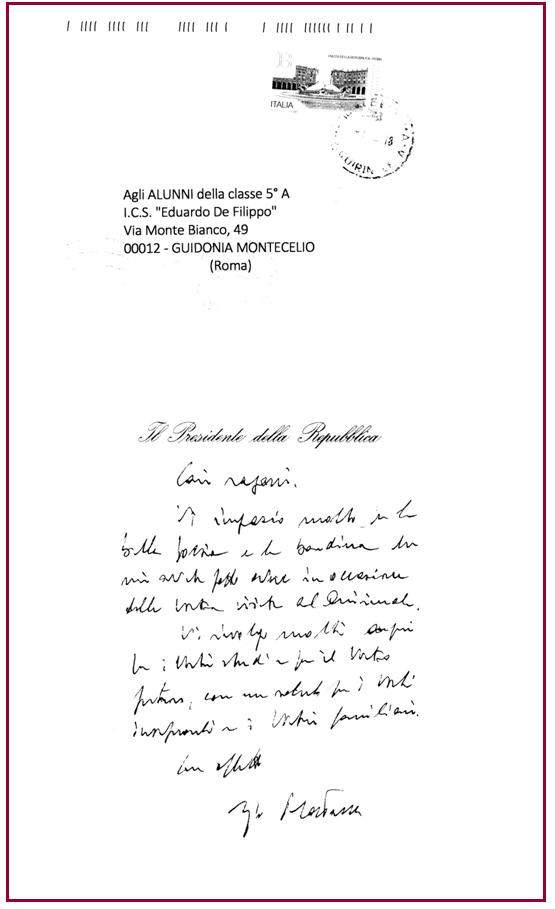 B
PIAZZA DELLA REPUBBLICA - ROMA
ITALIA
Agli ALUNNI della classe 5° A
I.C.S. "Eduardo De Filippo"
Via Monte Bianco, 49
00012 - GUIDONIA MONTECELIO
(Roma)
Il Presidente della Repubblica
Cari ragazzi,
Vi ringrazio molto per la
bella poesia e la bandiera che
mi avete fatto avere in occasione
della vostra visita al Quirinale.
Vi rivolgo molti auguri
per i vostri studi e per il vostro
futuro, con un saluto per i vostri
insegnanti e i vostri familiari.
Con affetto
Sergio Mattarella